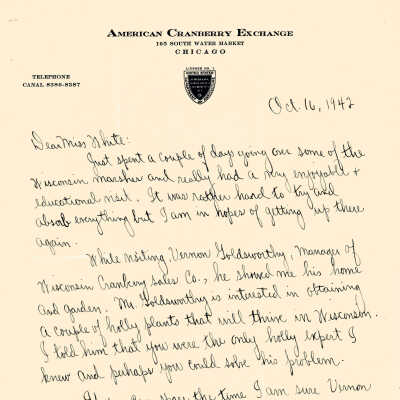 AMERICAN CRANBERRY EXCHANGE
105 SOUTH WATER MARKET
CHICAGO
TELEPHONE
CANAL 8386-8387
Oct. 16, 1942
Dear Miss White:
Just spent a couple of days going over some of the
Wisconsin marshes and really had a very enjoyable +
educational visit. It was rather hard to try and
absorb everything but I am in hopes of getting up there
again.
While visiting Vernon Goldsworthy, Manager of
Wisconsin Cranberry Sales Co., he showed me his home
and garden. Mr. Goldsworthy is interested in obtaining
a couple of holly plants that will thrive in Wisconsin.
I told him that you were the only holly expert I
knew and perhaps you could solve his problem.
the time I am sure Vernon